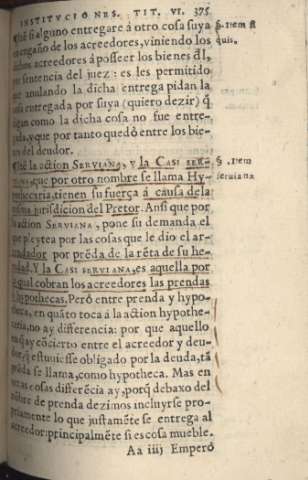 INSTITVCIONES. TIT. VI. 375
si alguno entregare á otro cosa suya
engaño de los acreedores, viniendo los
acreedores á posseer los bienes dl,
sentencia del juez: es les permitido
anulando la dicha entrega pidan la
entregada por suya (quiero dezir) q̃
como la dicha cosa no fue entre-
y que por tanto quedó entre los bie-
del deudor.
§. Item si
quis.
la action SERVIANA, y la CASI SER-
que por otro nombre se llama Hy-
tienen su fuerça á causa dela
jurisdicion del Pretor. Ansi que por
action SERVIANA, pone su demanda el
pleytea por las cosas que le dio el ar-
por prẽda de la rẽta de su he-
Y la CASI SERVIANA, es aquella por
qual cobran los acreedores las prendas
hypothecas. Peró entre prenda y hypo-
en quãto toca á la action hypothe-
no ay differencia: por que aquello
ay cõcierto entre el acreedor y deu-
estuuiesse obligado por la deuda, tã
se llama, como hypotheca. Mas en
cosas differẽcia ay, porq̃ debaxo del
de prenda dezimos incluyrse pro-
lo que justamẽte se entrega al
acreedor: principalmẽte si es cosa mueble.
§. Item
seruiana
Aa iiij Emperó